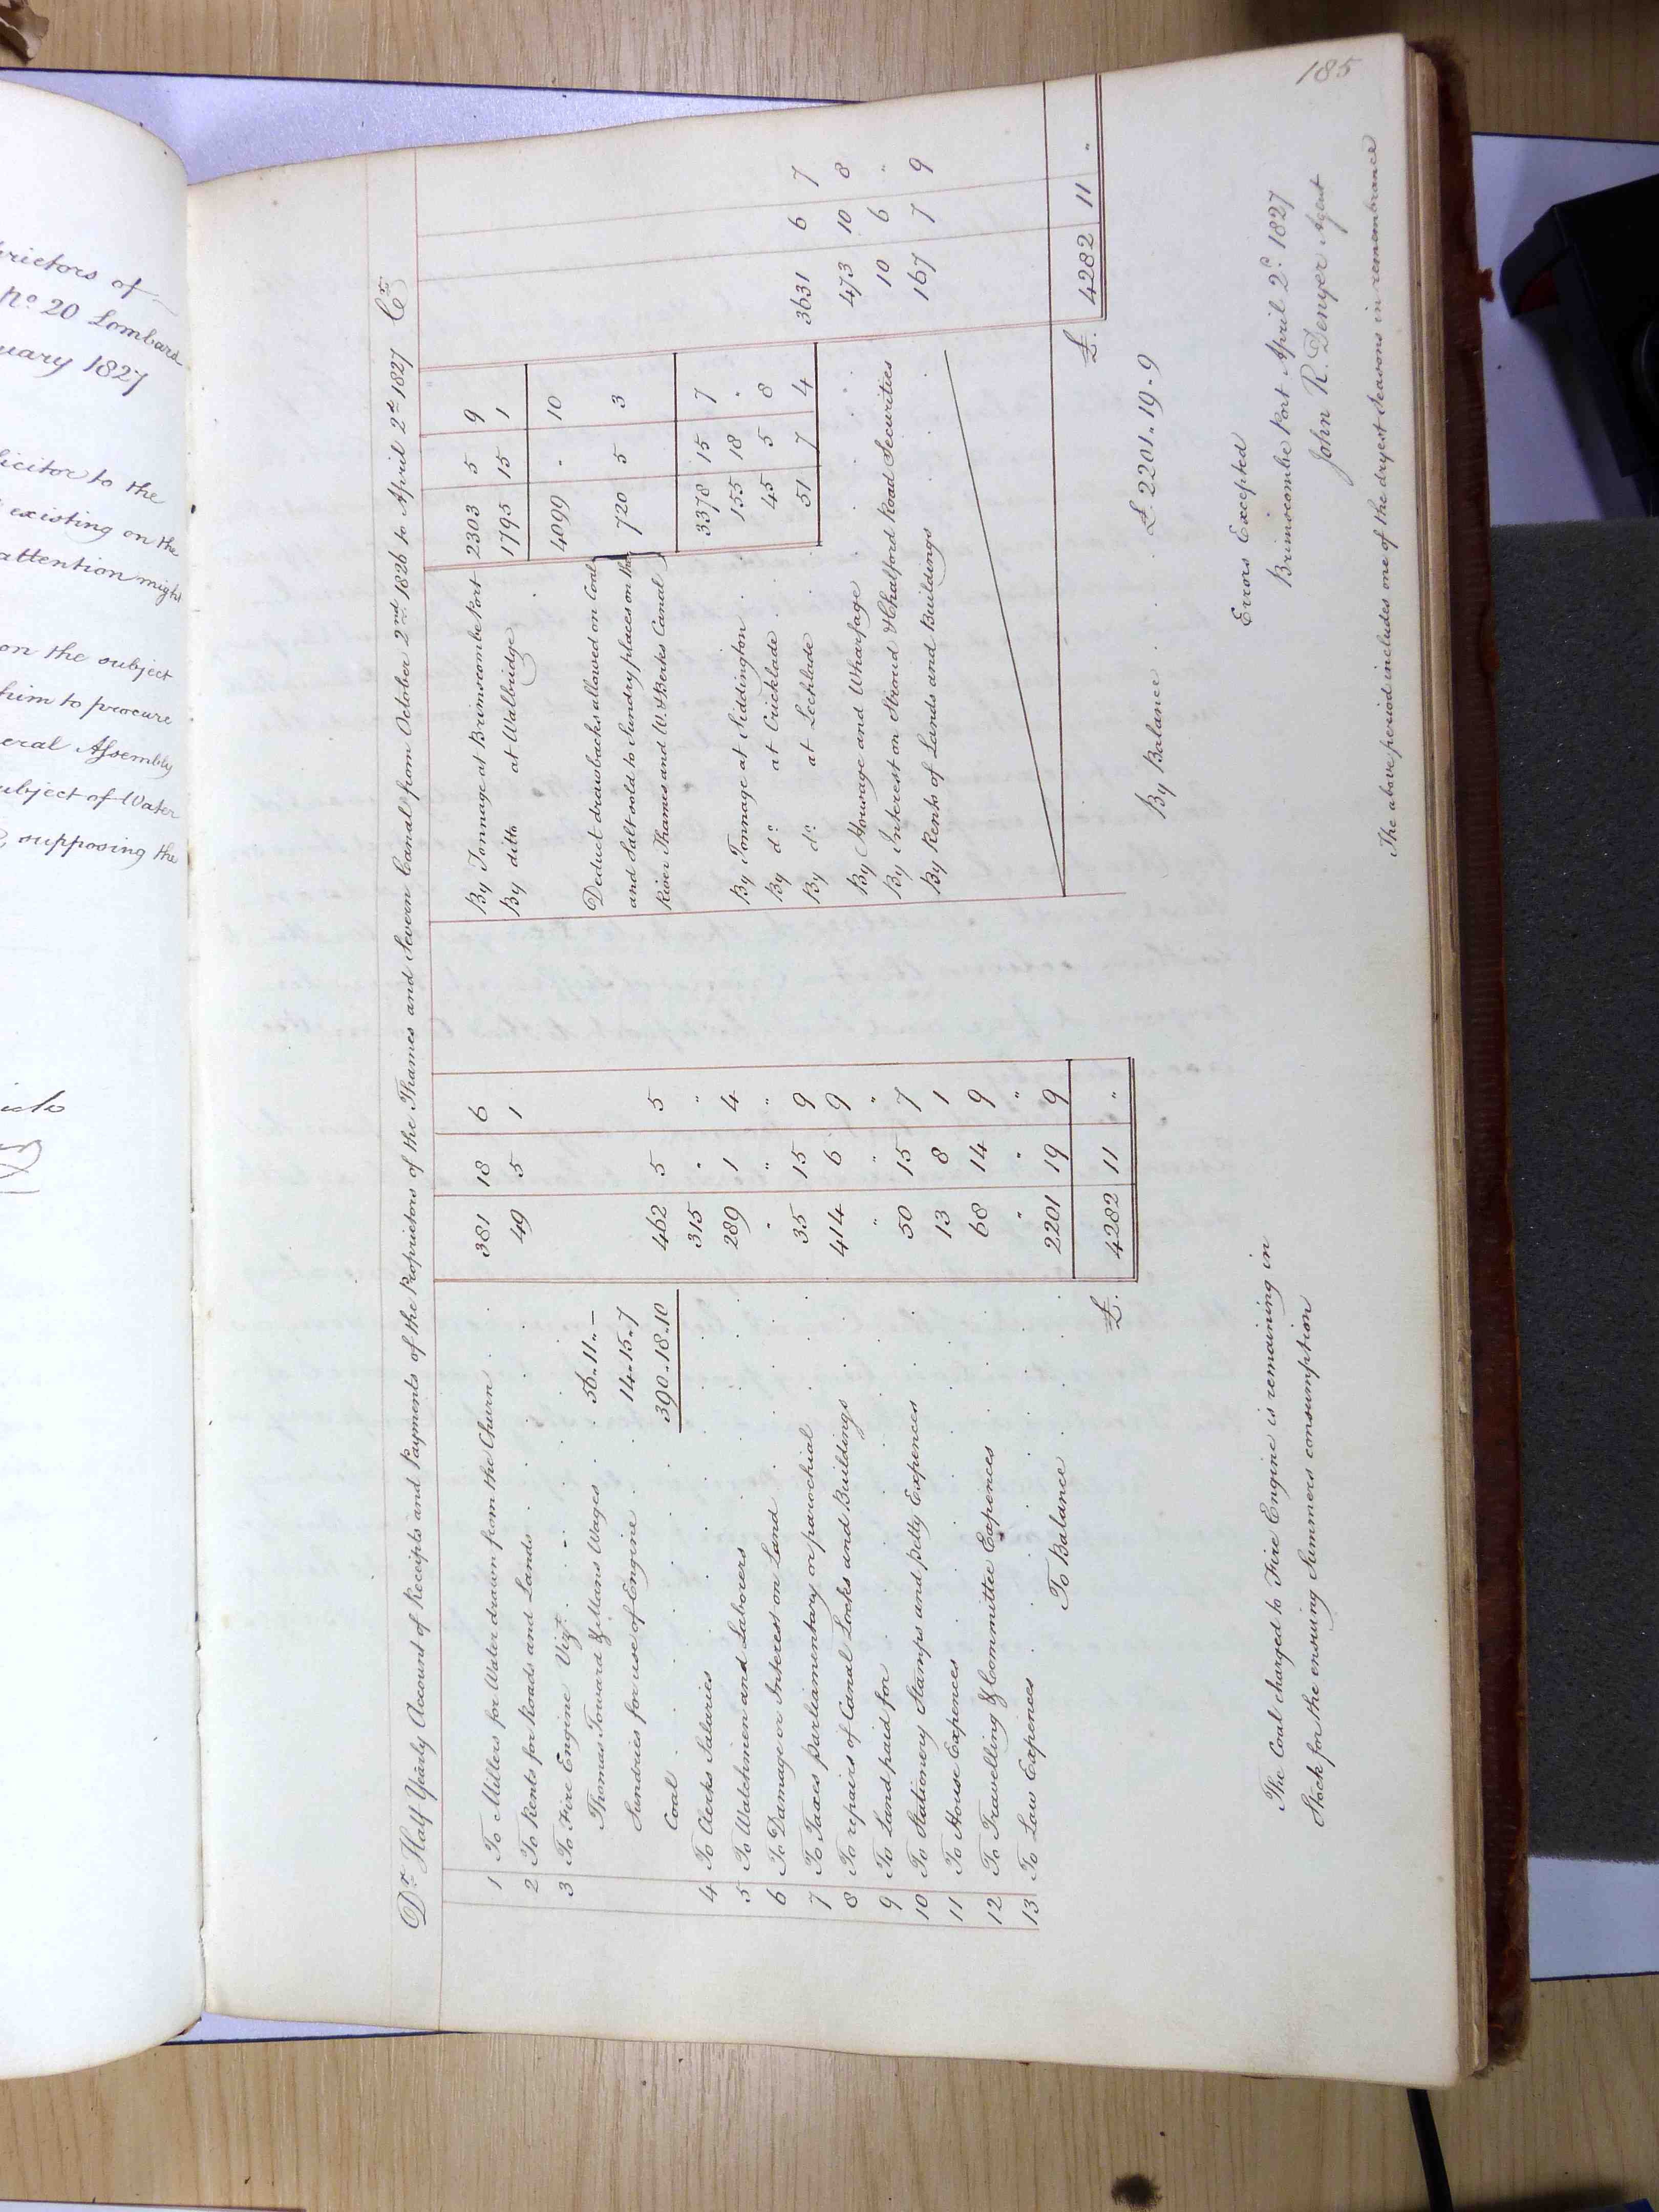 rietors of
No. 20 Lombard
uary 1827
licitor to the
existing on the
attention might
on the subject
him to procure
eral Assembly
ubject of Water
supposing the
185
Dr. Half Yearly Account of Receipts and Payments of the Proprietors of the Thames and Severn Canal from October 2nd. 1826 to April 2d. 1827 Cr.
1 To Millers for Water drawn from the Churn 381 18 6
2 To Rents for Heads and Lands 49 5 1
3 To Fire Engine Vizt.
Thomas Toward & Mans Wages 56 .. 11 .. –
Sundries for use of Engine 14 .. 15 .. 7
Coal 390 .. 18 .. 10 462 5 5
4 To Clerks Salaries 315 " "
5 To Watchmen and Laborers 289 1 4
6 To Damage or Interest on Land " " "
7 To Taxes parliamentary or parochial 35 15 9
8 To repairs of Canal Locks and Buildings 414 6 9
9 To Land paid for " " "
10 To Stationery Stamps and petty Expences 50 15 7
11 To House Expences 13 8 1
12 To Travelling & Committee Expences 68 14 9
13 To Law Expences " " "
To Balance 2201 19 9
£. 4282 11 "
The Coal charged to Fire Engine is remaining in
Stock for the ensuing Summers consumption
By Tonnage at Brimscombe Port 2303 5 9
By ditto at Wallbridge 1795 15 1
4099 " 10
Deduct drawbacks allowed on Coal
and Salt sold to Sundry places on the 720 5 3
River Thames and W. & Berks Canal
3378 15 7
By Tonnage at Siddington 155 18 "
By do. at Cricklade 45 5 8
By do. at Lechlade 51 7 4 3631 6 7
By Houseage and Wharfage 473 10 8
By Interest on Stroud & Chalford Road Securities 10 6 "
By Rents of Lands and Buildings 167 7 9
£. 4282 11 "
By Balance £ 2201 .. 19 .. 9
Errors Excepted
Brimscombe Port April 2d. 1827
John R. Denyer Agent
The above period includes one of the dryest Seasons in remembrance